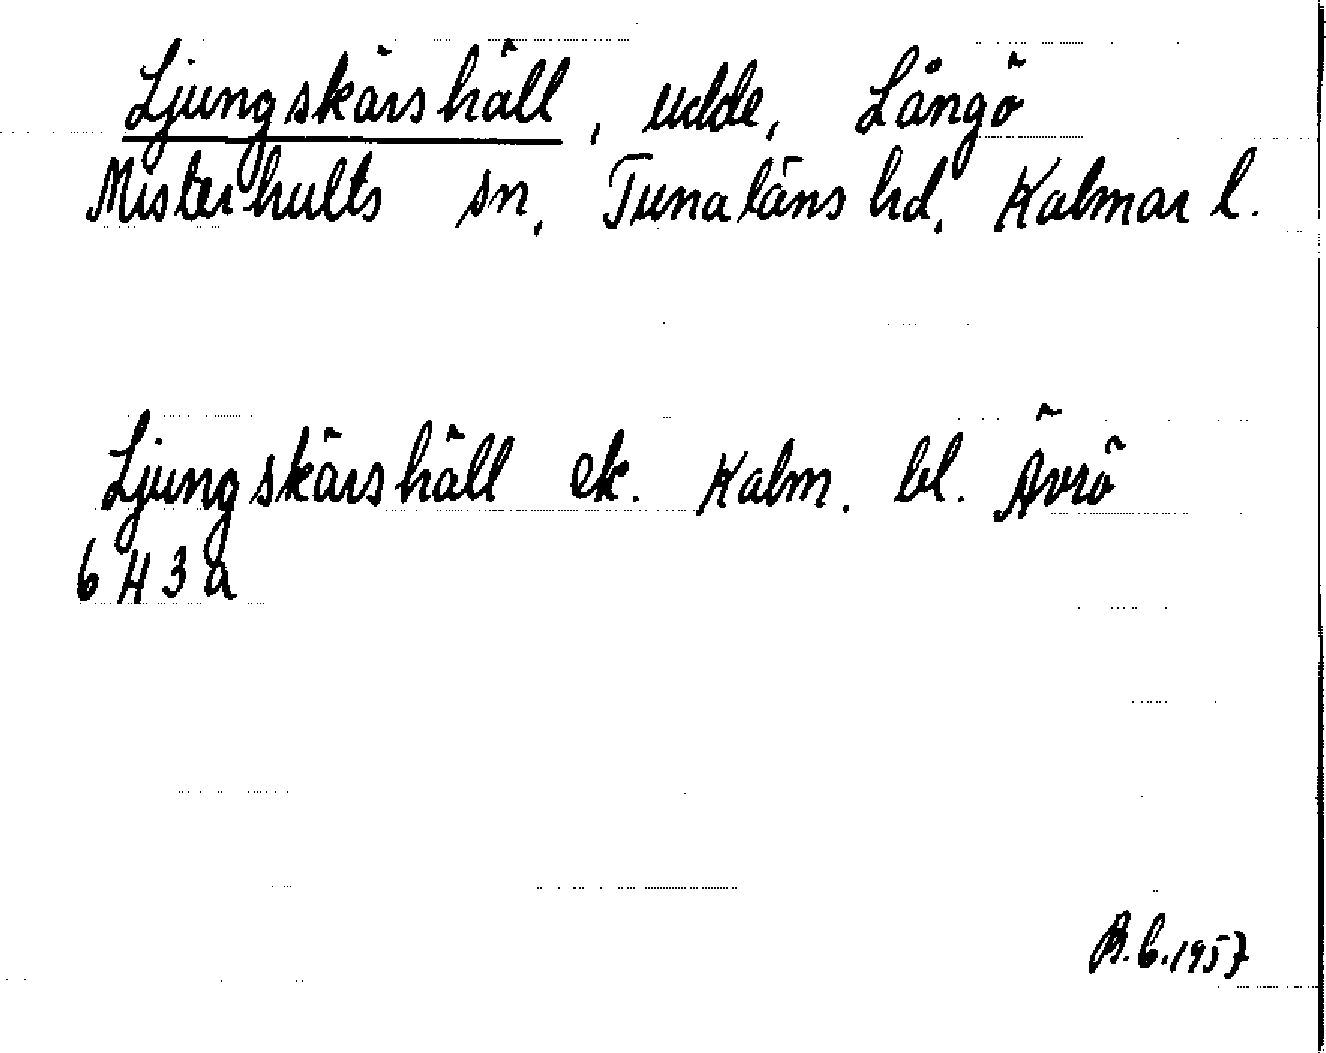 Ljungskärshäll, udde, Långö
Misterhults sn, Tunaläns hd, Kalmar l.
Ljungskärshäll ek. Kalm. bl. Ävrö
6 H 3 a
B.G.1957